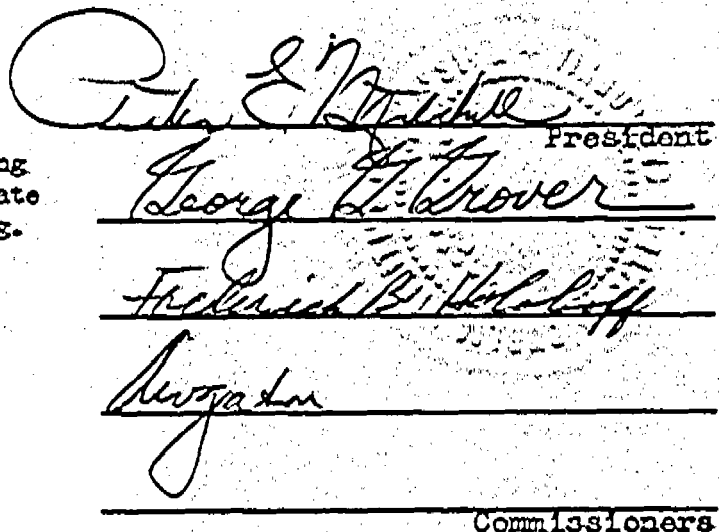 Peter E. Mitchell
President
ng
ate
g.
George G. Grover
Frederick B. Holoboff
Commissioners